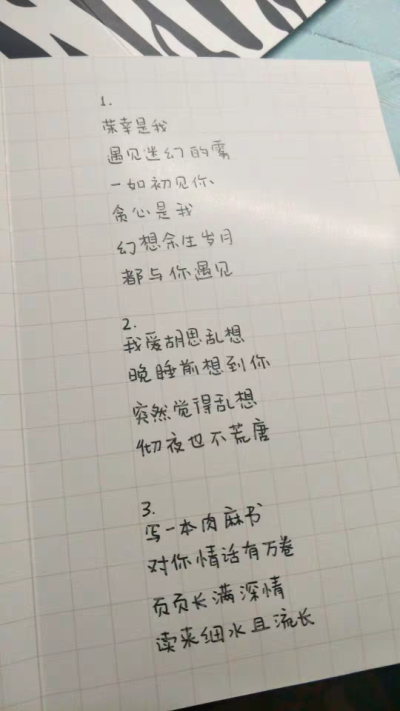 1.
荣幸是我
遇见迷幻的雾
一如初见你
贪心是我
幻想余生岁月
都与你遇见
2.
我爱胡思乱想
晚睡前想到你
突然觉得乱想
彻夜也不荒唐
3.
写一本肉麻书
对你情话有万卷
页页长满深情
读来细水且流长